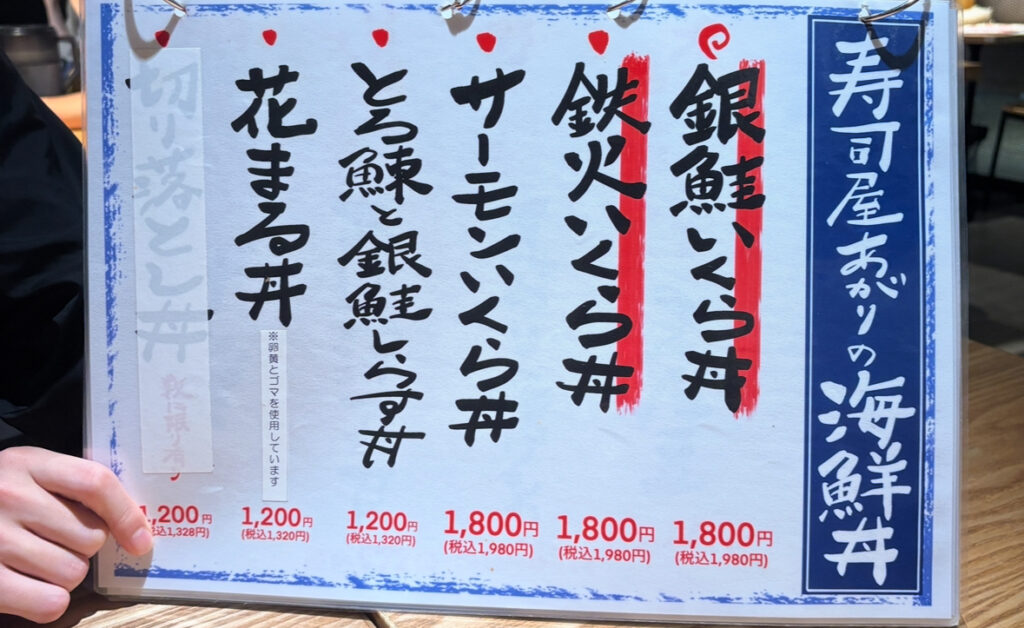 寿司屋あがりの海鮮丼
銀鮭いくら丼
1,800円
(税込1,980円)
鉄火いくら丼
1,800円
(税込1,980円)
サーモンいくら丼
1,800円
(税込1,980円)
とろ鰊と銀鮭しらす丼
1,200円
(税込1,320円)
花まる丼
※卵黄とゴマを使用しています
1,200円
(税込1,320円)
切り落とし丼
1,200円
(税込1,328円)